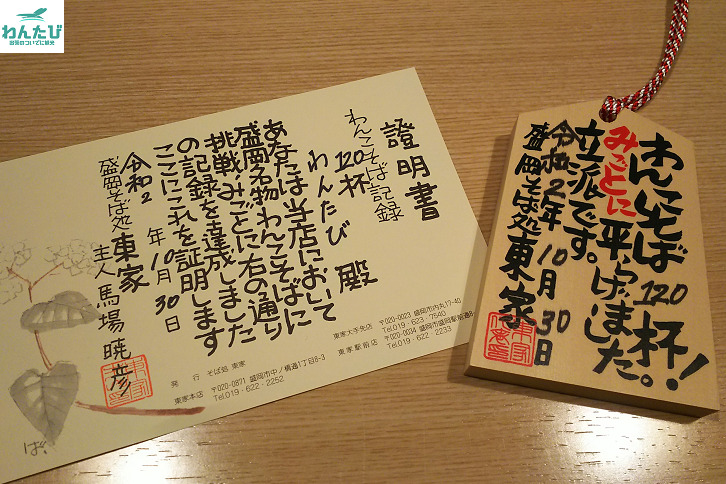 わんたび
出張のついでに観光
證明書
わんこそば記録
120杯
わんたび 殿
あなたは当店において
盛岡名物わんこそばに
挑戦しみごとに右の通り
の記録を達成しました
ここにこれを証明します
令和2年10月30日
盛岡そば処 東家
主人 馬場暁彦
発行 そば処 東家
東家本店 〒020-0871 盛岡市中ノ橋通1丁目8-3
Tel.019・622・2252
東家大手先店 〒020-0023 盛岡市内丸17-40
Tel.019・623・7540
東家駅前店 〒020-0034 盛岡市盛岡駅前通8
Tel.019・622・2233
ば
わんこそば120杯!
みごとに平らげました。
立派です。
令和2年10月30日
盛岡そば処 東家